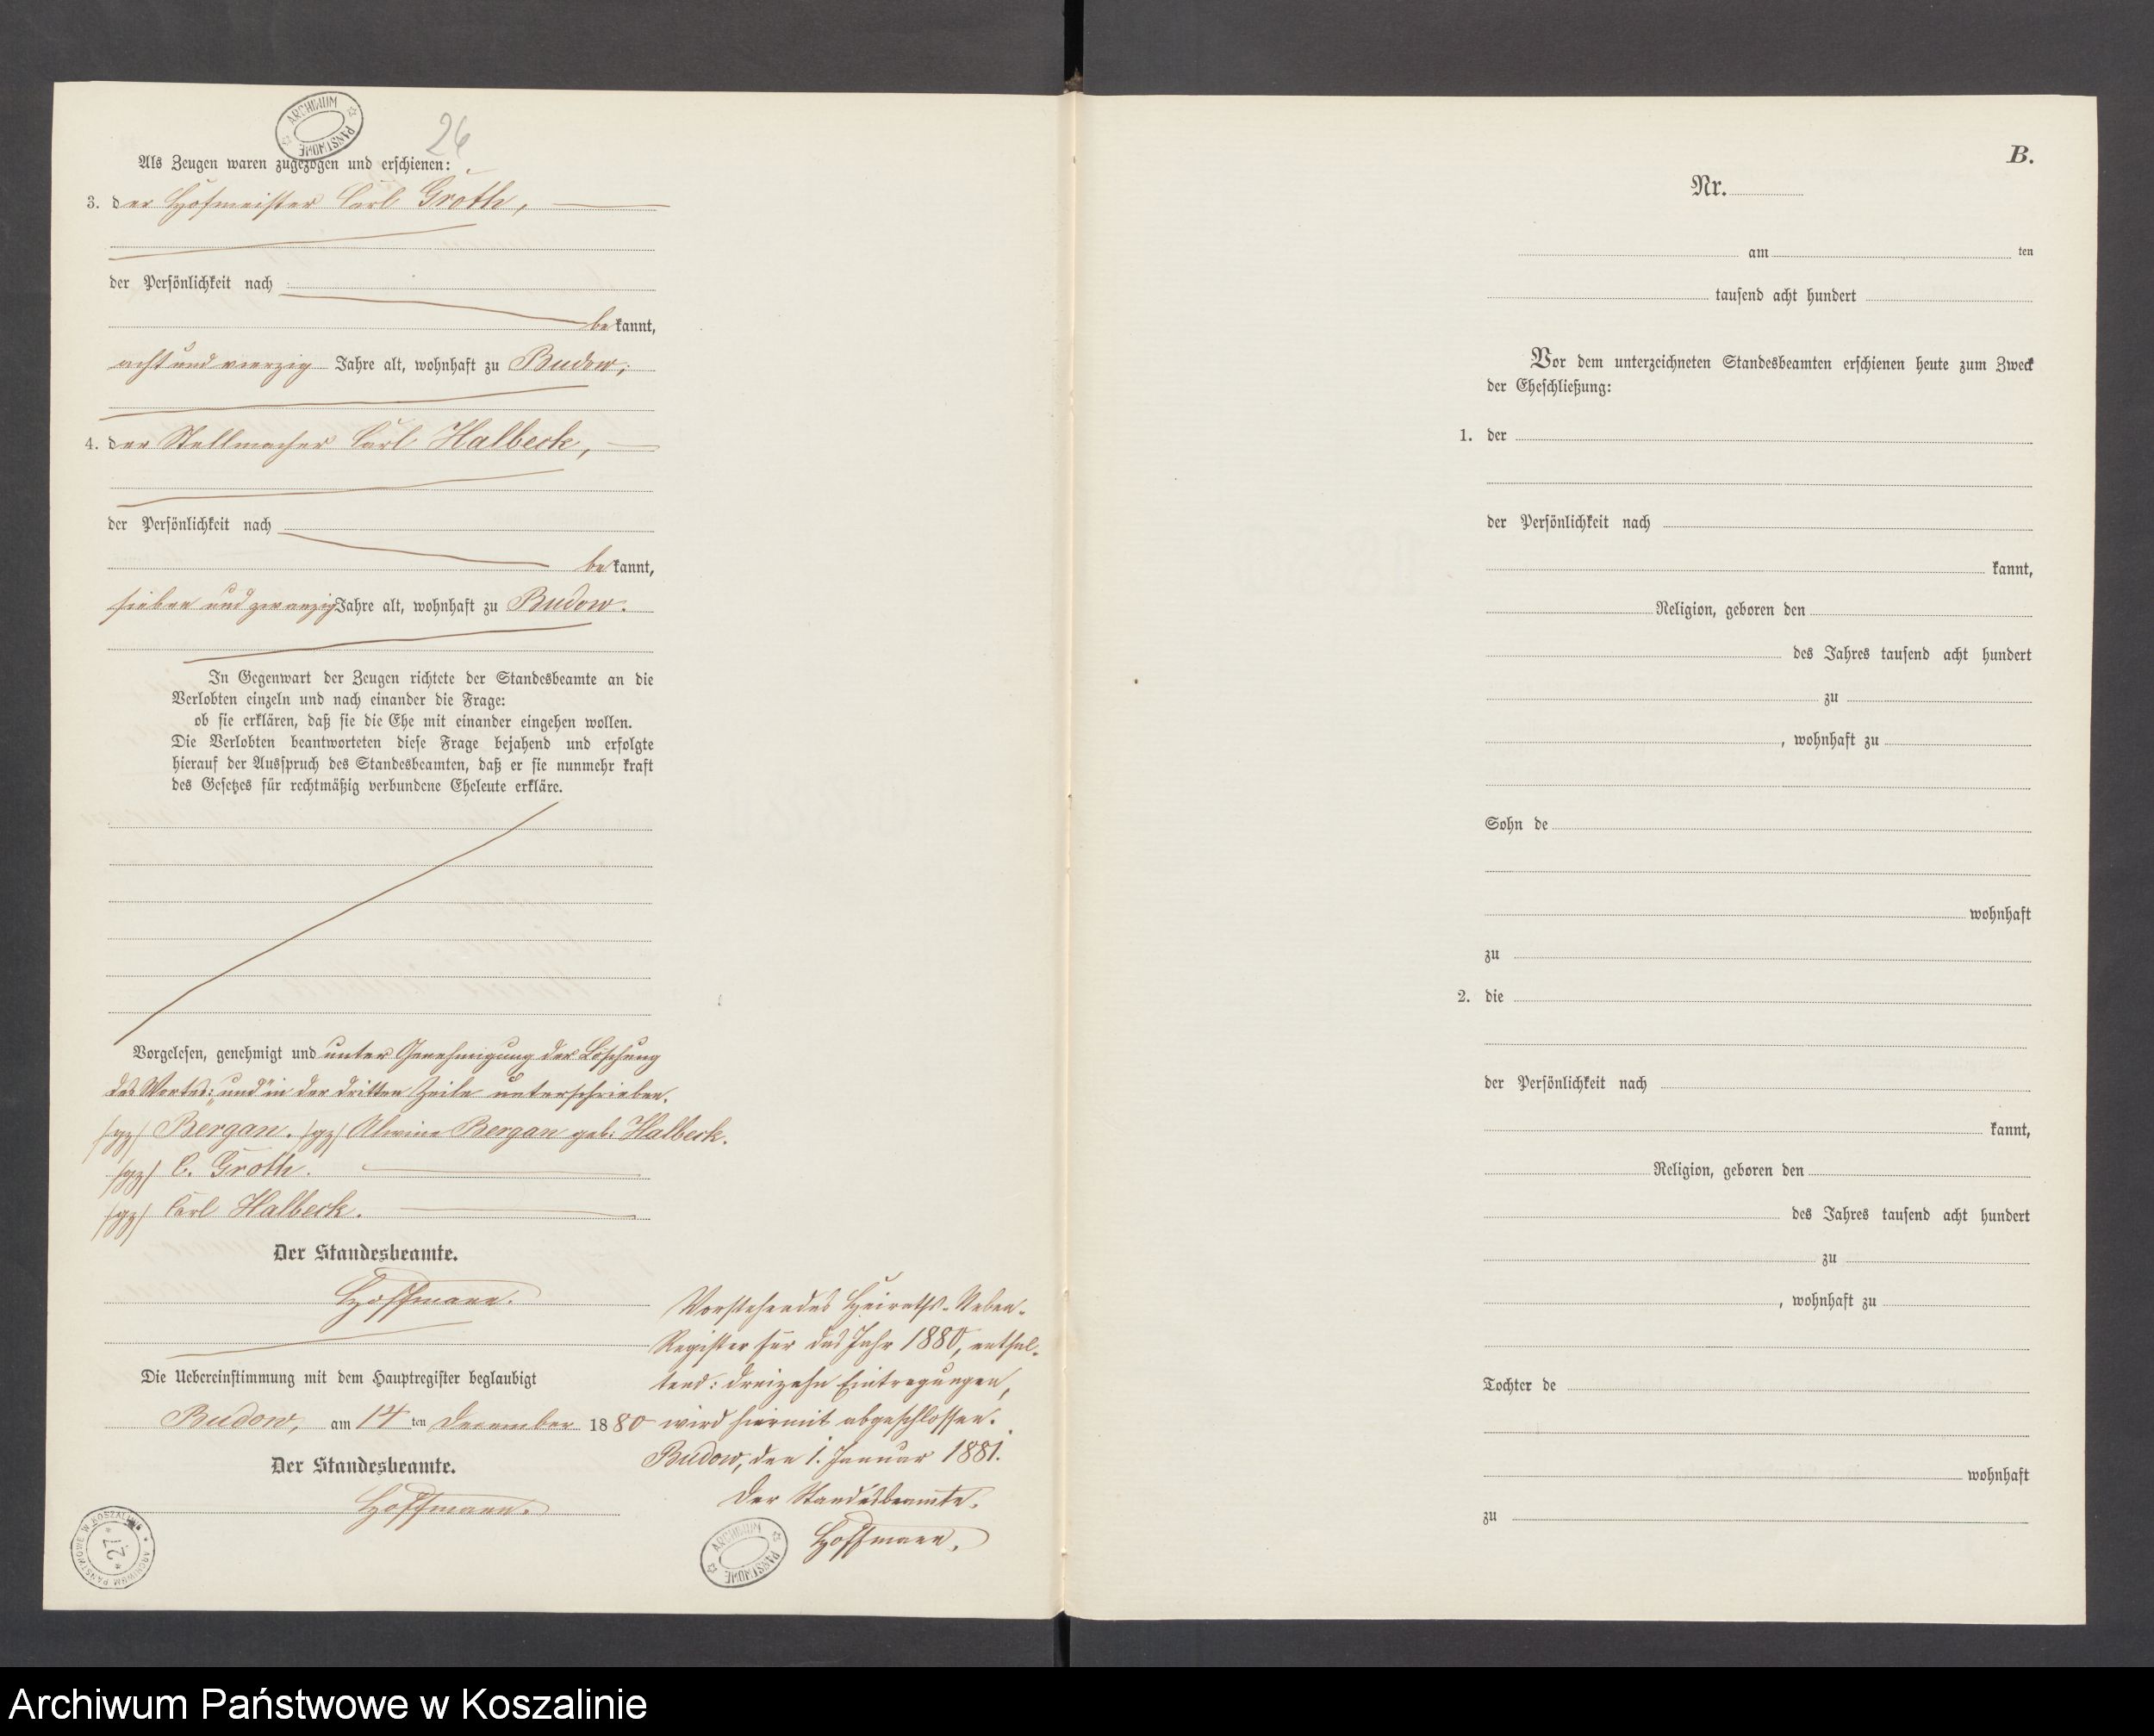 ARCHIWUM PAŃSTWOWE
26
Als Zeugen waren zugezogen und erschienen:
3. der Hofmeister Carl Groth,
der Persönlichkeit nach
bekannt,
acht und vierzig Jahre alt, wohnhaft zu Budow,
4. der Stellmacher Carl Halbeck,
der Persönlichkeit nach
bekannt,
sieben und zwanzig Jahre alt, wohnhaft zu Budow.
In Gegenwart der Zeugen richtete der Standesbeamte an die
Verlobten einzeln und nach einander die Frage:
ob sie erklären, daß sie die Ehe mit einander eingehen wollen.
Die Verlobten beantworteten diese Frage bejahend und erfolgte
hierauf der Ausspruch des Standesbeamten, daß er sie nunmehr kraft
des Gesetzes für rechtmäßig verbundene Eheleute erkläre.
Vorgelesen, genehmigt und unter Genehmigung der Löschung
des Wortes: „und“ in der dritten Zeile unterschrieben.
/gz/ Bergan. /gz/ Alwine Bergan geb: Halbeck.
/gz/ C. Groth.
/gz/ Carl Halbeck.
Der Standesbeamte.
Hoffmann.
Die Uebereinstimmung mit dem Hauptregister beglaubigt
Budow, am 14 ten December 1880
Der Standesbeamte.
Hoffmann.
ARCHIWUM PAŃSTWOWE W KOSZALINIE
* 27 *
Vorstehendes Heiraths-Neben-
Register für das Jahr 1880, enthal-
tend: dreizehn Eintragungen,
wird hiermit abgeschlossen.
Budow, den 1. Januar 1881.
Der Standesbeamte.
Hoffmann.
ARCHIWUM PAŃSTWOWE
B.
Nr.
am ten
tausend acht hundert
Vor dem unterzeichneten Standesbeamten erschienen heute zum Zweck
der Eheschließung:
1. der
der Persönlichkeit nach
kannt,
Religion, geboren den
des Jahres tausend acht hundert
zu
, wohnhaft zu
Sohn de
wohnhaft
zu
2. die
der Persönlichkeit nach
kannt,
Religion, geboren den
des Jahres tausend acht hundert
zu
, wohnhaft zu
Tochter de
wohnhaft
zu
Archiwum Państwowe w Koszalinie